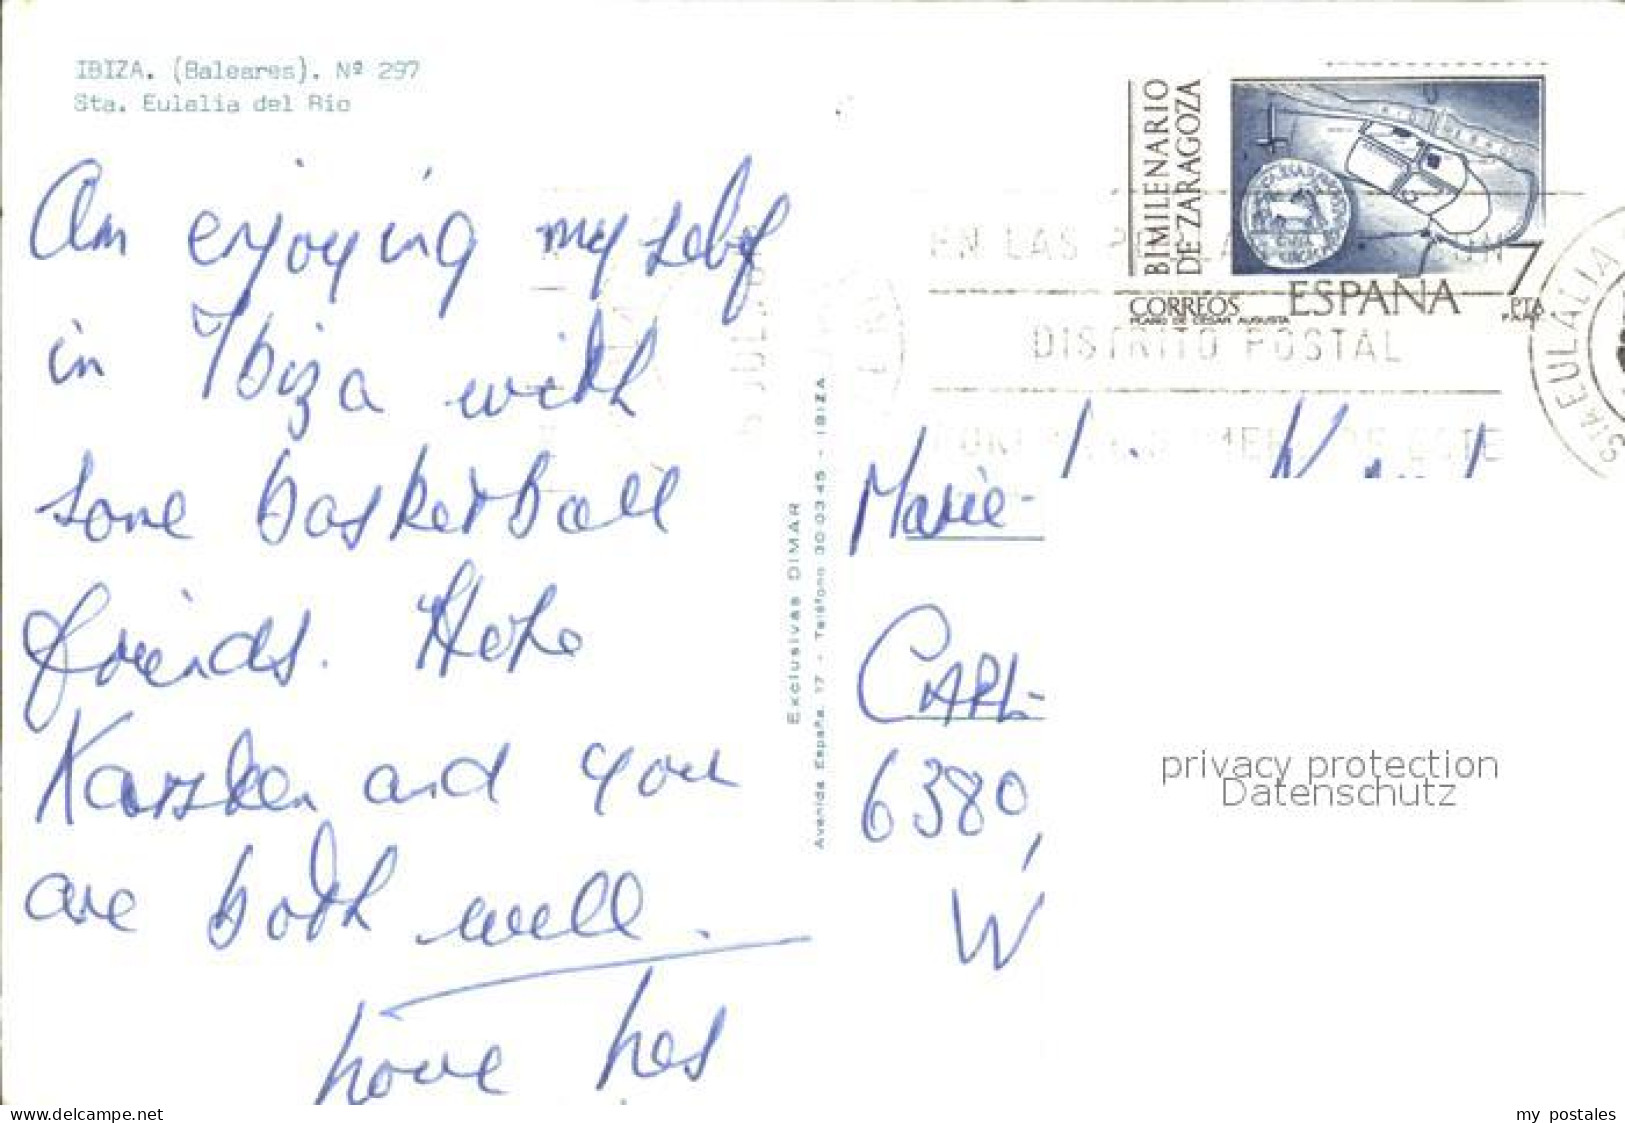 IBIZA. (Baleares). Nº 297
Sta. Eulalia del Rio
Am enjoying my self
in Ibiza with
some basketball
friends. Hope
Karsten and you
are both well.
Love Les
Exclusivas DIMAR
Avenida España, 17 - Teléfono 30 03 45 - IBIZA
BIMILENARIO
DE ZARAGOZA
CORREOS ESPAÑA 7 PTA
PLANO DE CESAR AUGUSTA F.N.M.T.
EN LAS
DISTRITO POSTAL
STA EULALIA
Marie-
CARL-
6380,
W
privacy protection
Datenschutz
www.delcampe.net
my postales